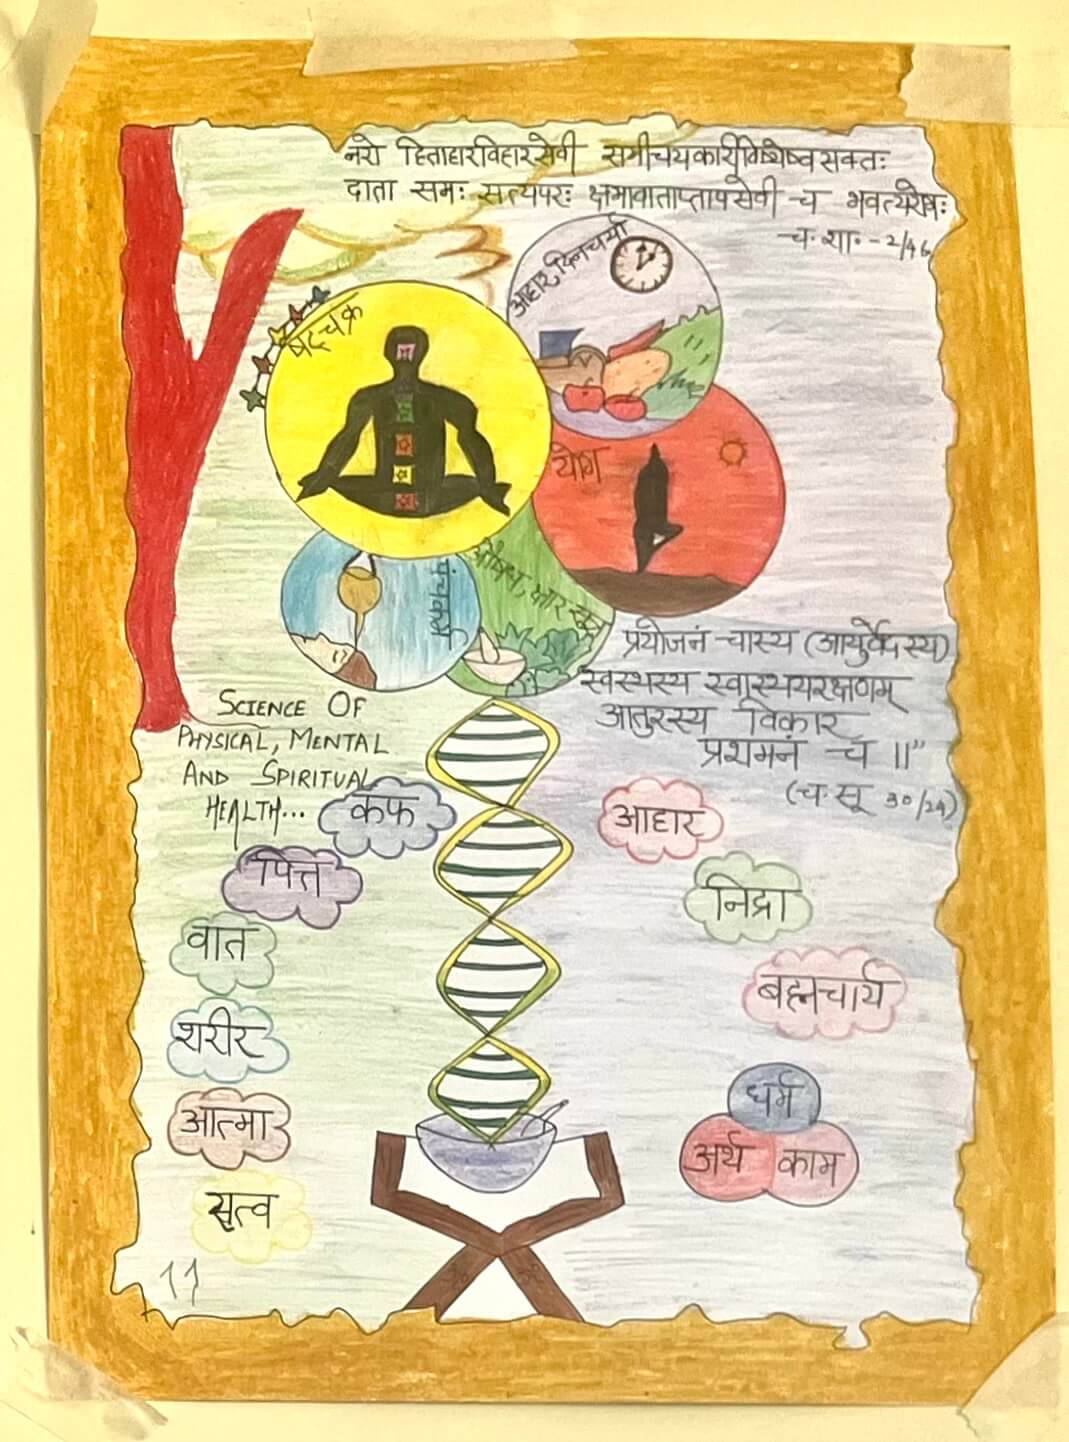 नरो हिताहारविहारसेवी समीक्ष्यकारी विषयेष्वसक्तः
दाता समः सत्यपरः क्षमावानाप्तोपसेवी च भवत्यरोगः
च. शा. - 2/46
आहार, दिनचर्या
षट्चक्र
योग
पंचकर्म
औषध, क्षार सूत्र
प्रयोजनं चास्य (आयुर्वेदस्य)
स्वस्थस्य स्वास्थ्यरक्षणम्
आतुरस्य विकार
प्रशमनं च ॥"
(च. सू 30/26)
SCIENCE OF
PHYSICAL, MENTAL
AND SPIRITUAL
HEALTH...
कफ
पित्त
वात
शरीर
आत्मा
सत्व
आहार
निद्रा
बह्मचार्य
धर्म
अर्थ काम
11